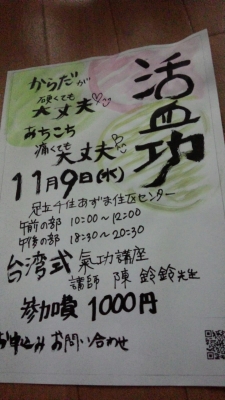 活血功
からだが
硬くても
大丈夫
あちこち
痛くても
大丈夫
11月9日(水)
足立千住あずま住区センター
午前の部 10:00〜12:00
午後の部 18:30〜20:30
台湾式 氣功講座
講師 陳 鈴鈴先生
参加費 1000円
お申込み お問い合わせ